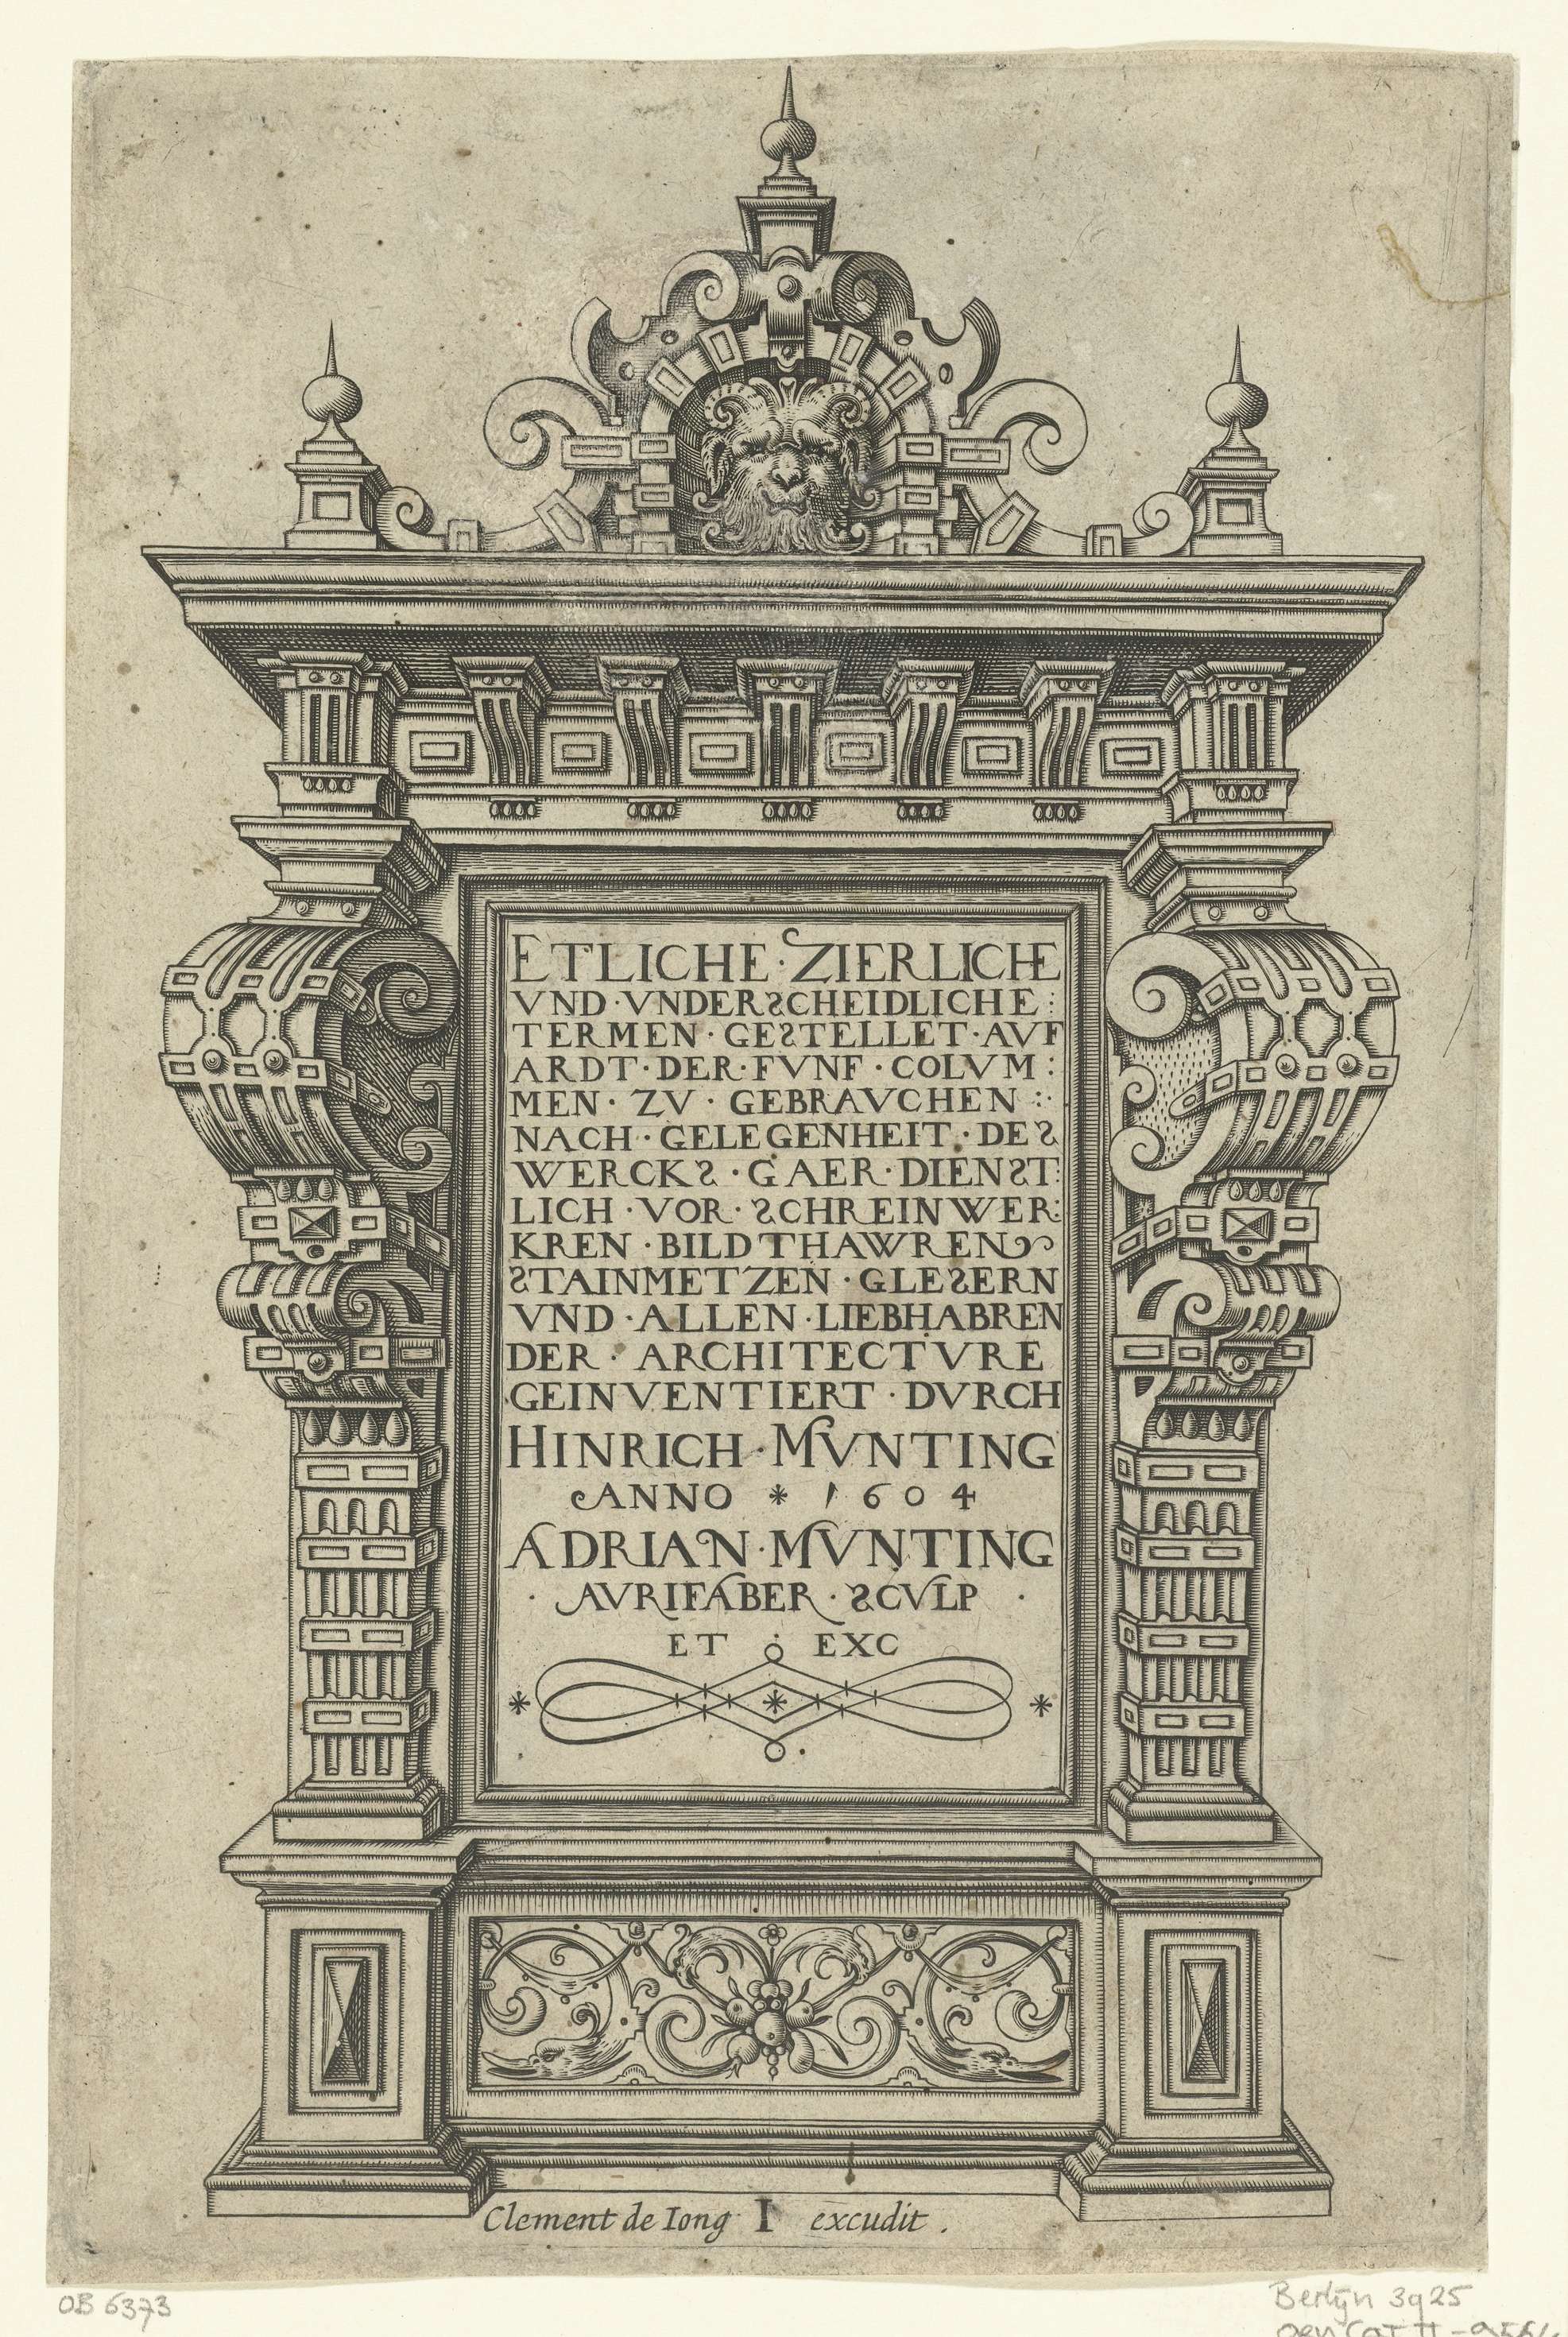 ETLICHE · ZIERLICHE
VND · VNDERSCHEIDLICHE :
TERMEN · GESTELLET · AVF
ARDT · DER · FVNF · COLVM :
MEN · ZV · GEBRAVCHEN :·
NACH · GELEGENHEIT · DES
WERCKS · GAER · DIENST:
LICH · VOR · SCHREINWER:
KREN · BILDTHAWREN
STAINMETZEN · GLESERN
VND · ALLEN · LIEBHABREN
DER · ARCHITECTVRE
GEINVENTIERT · DVRCH
HINRICH · MVNTING
ANNO * 1604
ADRIAN · MVNTING
· AVRIFABER · SCVLP ·
ET : EXC
Clement de Iong I excudit .
OB 6373
Berlijn 3925